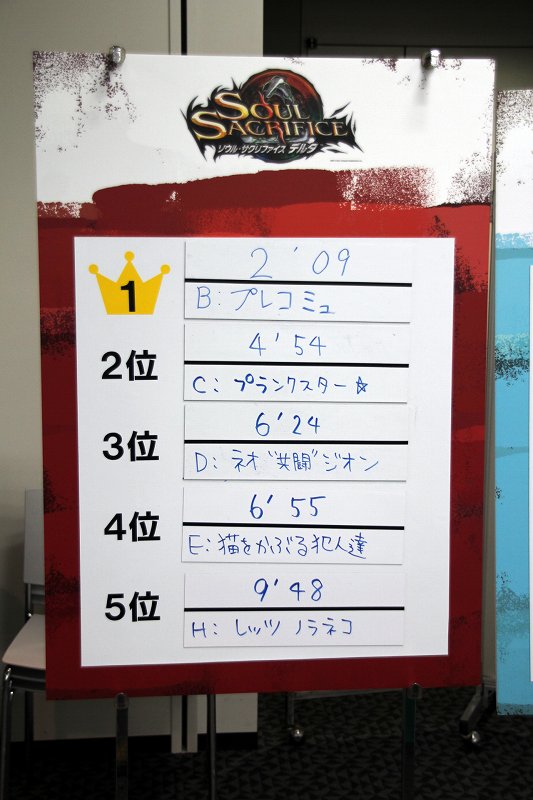 SOUL
SACRIFICE
ソウル・サクリファイス デルタ
1
2'09
B:プレコミュ
2位
4'54
C:プランクスター☆
3位
6'24
D:ネオ"共闘"ジオン
4位
6'55
E:猫をかぶる犯人達
5位
9'48
H:レッツノラネコ